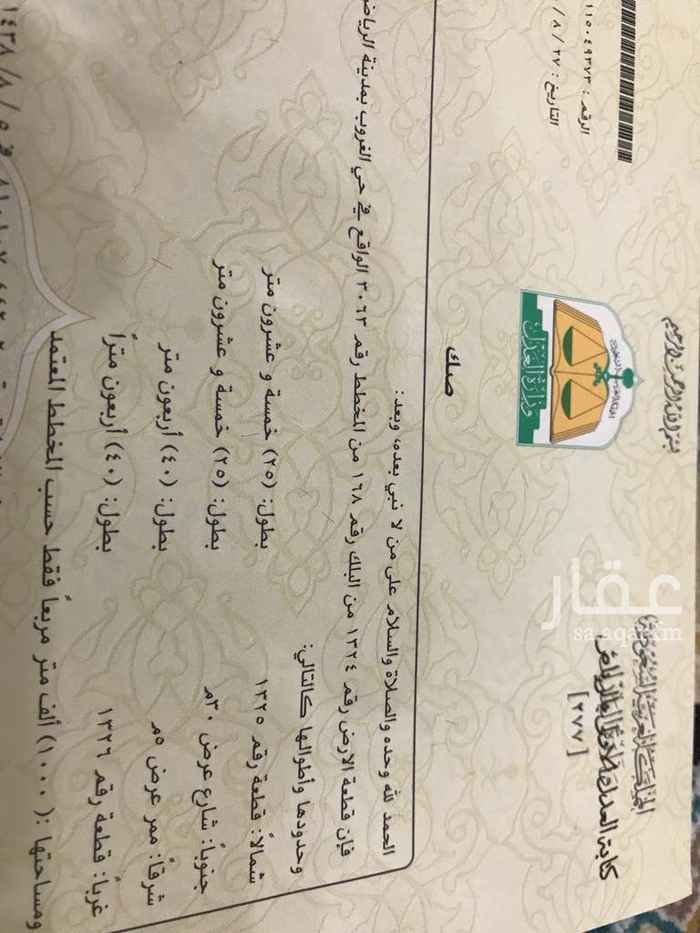 المملكة العربية السعودية
[٢٧٧]
وزارة العدل
الرقم : ١١٥٠٤٩٣٧٣
التاريخ : ٢٧ / ٨ /
صك
الحمد لله وحده والصلاة والسلام على من لا نبي بعده، وبعد:
فإن قطعة الارض رقم ١٣٢٤ من البلك رقم ١٦٨ من المخطط رقم ٣٠٦٣ الواقع في حي الغروب بمدينة الرياض
وحدودها وأطوالها كالتالي:
شمالاً: قطعة رقم ١٣٢٥ بطول: (٢٥) خمسة و عشرون متر
جنوباً: شارع عرض ٣٠م بطول: (٢٥) خمسة و عشرون متر
شرقاً: ممر عرض ٥م بطول: (٤٠) أربعون متر
غرباً: قطعة رقم ١٣٢٦ بطول: (٤٠) أربعون متراً
ومساحتها : (١٠٠٠) ألف متر مربعاً فقط حسب المخطط المعتمد
١٤٣٨ / ٨ / ٥
عقار
sa.aqar.fm